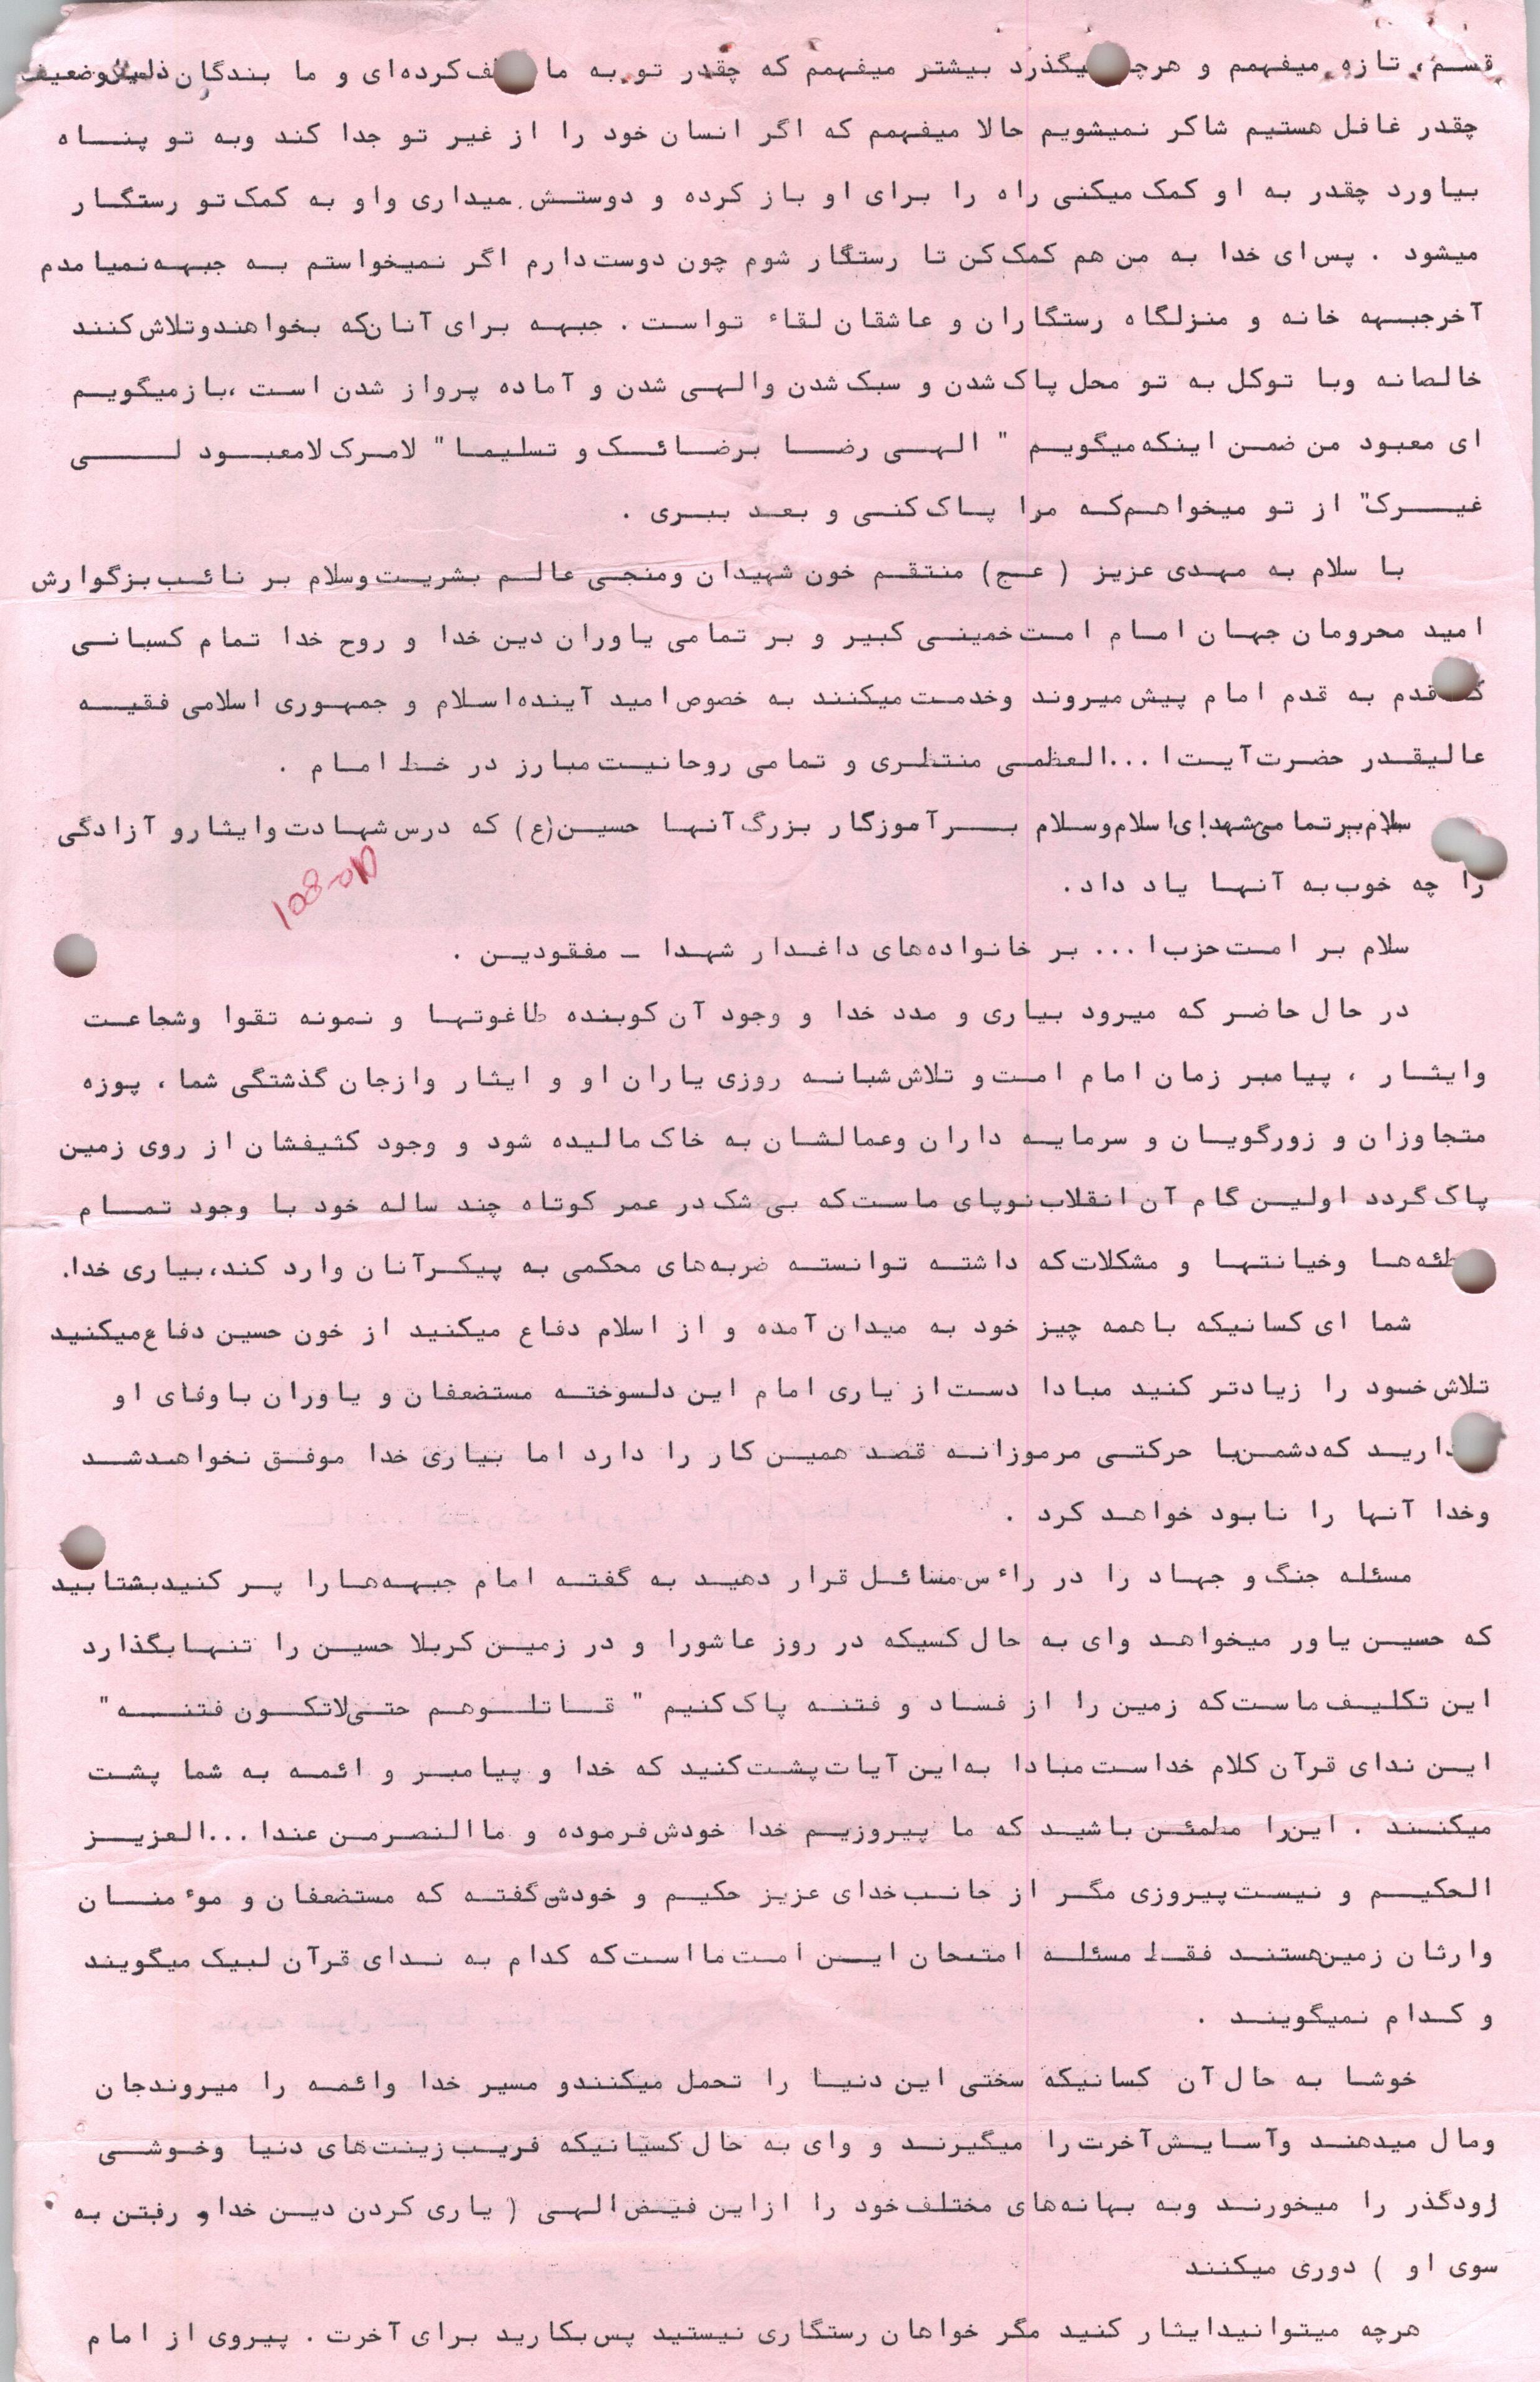 قسم، تازه میفهمم و هرچه میگذرد بیشتر میفهمم که چقدر تو به ما لطف کرده‌ای و ما بندگان ذلیل وضعیف
چقدر غافل هستیم شاکر نمیشویم حالا میفهمم که اگر انسان خود را از غیر تو جدا کند وبه تو پناه
بیاورد چقدر به او کمک میکنی راه را برای او باز کرده و دوستش میداری واو به کمک تو رستگار
میشود . پس ای خدا به من هم کمک کن تا رستگار شوم چون دوست دارم اگر نمیخواستم به جبهه نمیامدم
آخر جبهه خانه و منزلگاه رستگاران و عاشقان لقاء تو است . جبهه برای آنان که بخواهند و تلاش کنند
خالصانه وبا توکل به تو محل پاک شدن و سبک شدن والهی شدن و آماده پرواز شدن است ،باز میگویم
ای معبود من ضمن اینکه میگویم " الهی رضا برضائک و تسلیما" لامرک لامعبود لی
غیرک" از تو میخواهم که مرا پاک کنی و بعد ببری .
با سلام به مهدی عزیز ( عج) منتقم خون شهیدان ومنجی عالم بشریت وسلام بر نائب بزگوارش
امید محرومان جهان امام امت خمینی کبیر و بر تمامی یاوران دین خدا و روح خدا تمام کسانی
که قدم به قدم امام پیش میروند وخدمت میکنند به خصوص امید آینده اسلام و جمهوری اسلامی فقیه
عالیقدر حضرت آیت ا ...العظمی منتظری و تمامی روحانیت مبارز در خط امام .
سلام بر تمامی شهدای اسلام وسلام بر آموزگار بزرگ آنها حسین(ع) که درس شهادت وایثار و آزادگی
را چه خوب به آنها یاد داد.
سلام بر امت حزب ا ... بر خانواده‌های داغدار شهدا - مفقودین .
در حال حاضر که میرود بیاری و مدد خدا و وجود آن کوبنده طاغوتها و نمونه تقوا وشجاعت
وایثار ، پیامبر زمان امام امت و تلاش شبانه روزی یاران او و ایثار وازجان گذشتگی شما ، پوزه
متجاوزان و زورگویان و سرمایه داران وعمالشان به خاک مالیده شود و وجود کثیفشان از روی زمین
پاک گردد اولین گام آن انقلاب نوپای ماست که بی شک در عمر کوتاه چند ساله خود با وجود تمام
توطئه‌ها وخیانتها و مشکلات که داشته توانسته ضربه‌های محکمی به پیکر آنان وارد کند،بیاری خدا.
شما ای کسانیکه باهمه چیز خود به میدان آمده و از اسلام دفاع میکنید از خون حسین دفاع میکنید
تلاش خود را زیادتر کنید مبادا دست از یاری امام این دلسوخته مستضعفان و یاوران باوفای او
بدارید که دشمن با حرکتی مرموزانه قصد همین کار را دارد اما بیاری خدا موفق نخواهد شد
وخدا آنها را نابود خواهد کرد .
مسئله جنگ و جهاد را در راء س مسائل قرار دهید به گفته امام جبهه‌ها را پر کنید بشتابید
که حسین یاور میخواهد وای به حال کسیکه در روز عاشورا و در زمین کربلا حسین را تنها بگذارد
این تکلیف ماست که زمین را از فساد و فتنه پاک کنیم " قاتلوهم حتی لاتکون فتنه "
این ندای قرآن کلام خداست مبادا به این آیات پشت کنید که خدا و پیامبر و ائمه به شما پشت
میکنند . این را مطمئن باشید که ما پیروزیم خدا خودش فرموده و ما النصر من عندا ...العزیز
الحکیم و نیست پیروزی مگر از جانب خدای عزیز حکیم و خودش گفته که مستضعفان و موء منان
وارثان زمین هستند فقط مسئله امتحان این امت ما است که کدام به ندای قرآن لبیک میگویند
و کدام نمیگویند .
خوشا به حال آن کسانیکه سختی این دنیا را تحمل میکنند و مسیر خدا وائمه را میروند جان
ومال میدهند وآسایش آخرت را میگیرند و وای به حال کسانیکه فریب زینت‌های دنیا وخوشی
زودگذر را میخورند وبه بهانه‌های مختلف خود را از این فیض الهی ( یاری کردن دین خدا و رفتن به
سوی او ) دوری میکنند
هرچه میتوانید ایثار کنید مگر خواهان رستگاری نیستید پس بکارید برای آخرت . پیروی از امام